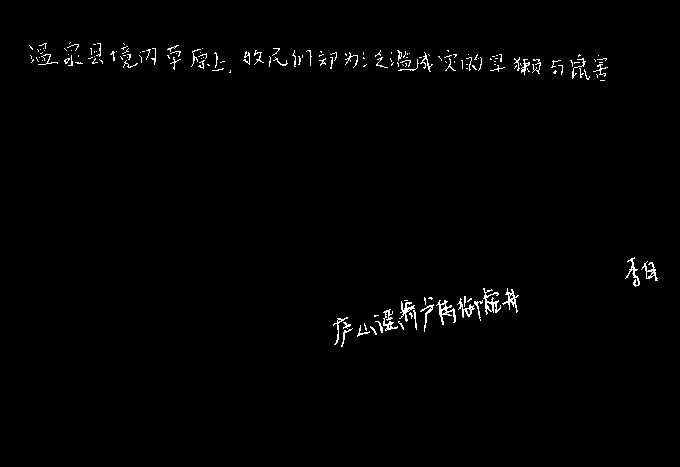 温泉县境内草原上,牧民们都为泛滥成灾的旱獭与鼠害
李白
庐山谣寄卢侍御虚舟